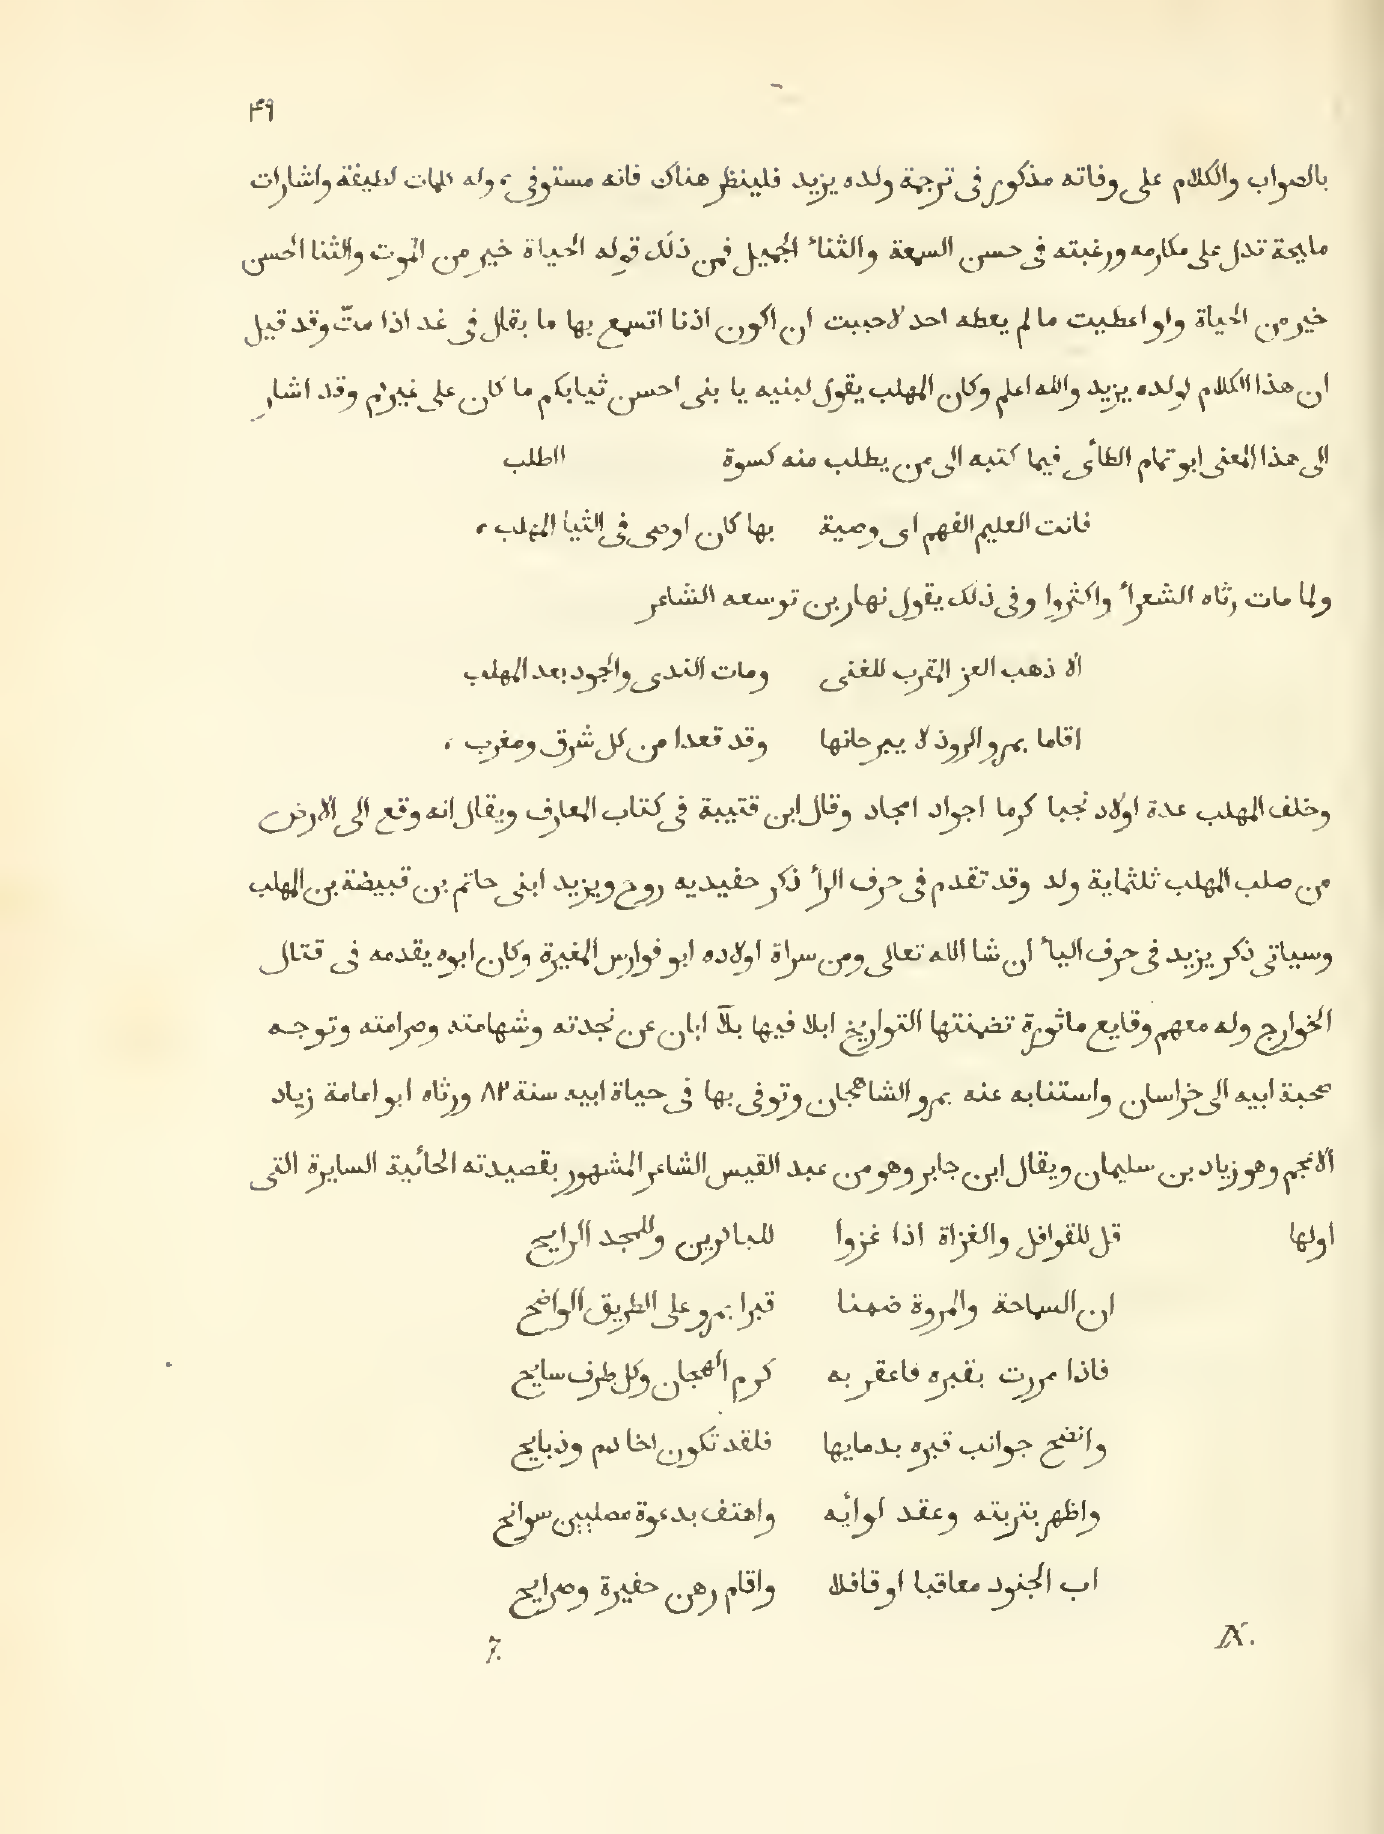 ۴۹
بالصواب والكلام على وفاته مذكور فى ترجمة ولده يزيد فلينظر هناك فانه مستوفى ، وله كلمات لطيفة واشارات
مليحة تدل على مكارمه ورغبته فى حسن السمعة والثناء الجميل فمن ذلك قوله الحياة خير من الموت والثنا الحسن
خير من الحياة ولو اعطيت ما لم يعطه احد لاحببت ان اكون اذنا اتسمع بها ما يقال فى غد اذا متّ وقد قيل
ان هذا الكلام لولده يزيد والله اعلم وكان المهلب يقول لبنيه يا بنى احسن ثيابكم ما كان على غيركم وقد اشار
الى هذا المعنى ابو تمام الطأى فيما كتبه الى من يطلب منه كسوة الطلب
فانت العليم الفهم اى وصية بها كان اوصى فى الثيا المهلب ،
ولما مات رثاه الشعرأ واكثروا وفى ذلك يقول نهار بن توسعه الشاعر
ألا ذهب العز المقرب للغنى ومات الندى والجود بعد المهلب
اقاما بمرو الروذ لا يبرحانها وقد قعدا من كل شرق ومغرب ،
وخلف المهلب عدة اولاد نجبا كرما اجواد امجاد وقال ابن قتيبة فى كتاب المعارف ويقال انه وقع الى الارض
من صلب المهلب ثلثماية ولد وقد تقدم فى حرف الرأ ذكر حفيديه روح ويزيد ابنى حاتم بن قبيضة بن المهلب
وسياتى ذكر يزيد فى حرف اليأ ان شا الله تعالى ومن سراة اولاده ابو فوارس المغيرة وكان ابوه يقدمه فى قتال
الخوارج وله معهم وقايع ماثورة تضمنتها التواريخ ابلا فيها بلآ ابان عن نجدته وشهامته وصرامته وتوجه
صحبة ابيه الى خراسان واستنابه عنه بمرو الشاهجان وتوفى بها فى حياة ابيه سنة ٨٢ ورثاه ابو امامة زياد
ألاعجم وهو زياد بن سليمان ويقال ابن جابر وهو من عبد القيس الشاعر المشهور بقصيدته الحائية السايرة التى
اولها قل للقوافل والغزاة اذا غزوا للباكرين وللمجد الرايح
ان السماحة والمروة ضمنا قبرا بمرو على الطريق الواضح
فاذا مررت بقبره فاعقر به كرم الهجان وكل طرف سابح
وانضح جوانب قبره بدمايها فلقد تكون اخا دم وذبايح
واظهر بتربته وعقد لوأيه واهتف بدعوة مصلبين سوانح
اب الجنود معاقبا او قافلا واقام رهن حفيرة وصرايح
IX. 7.